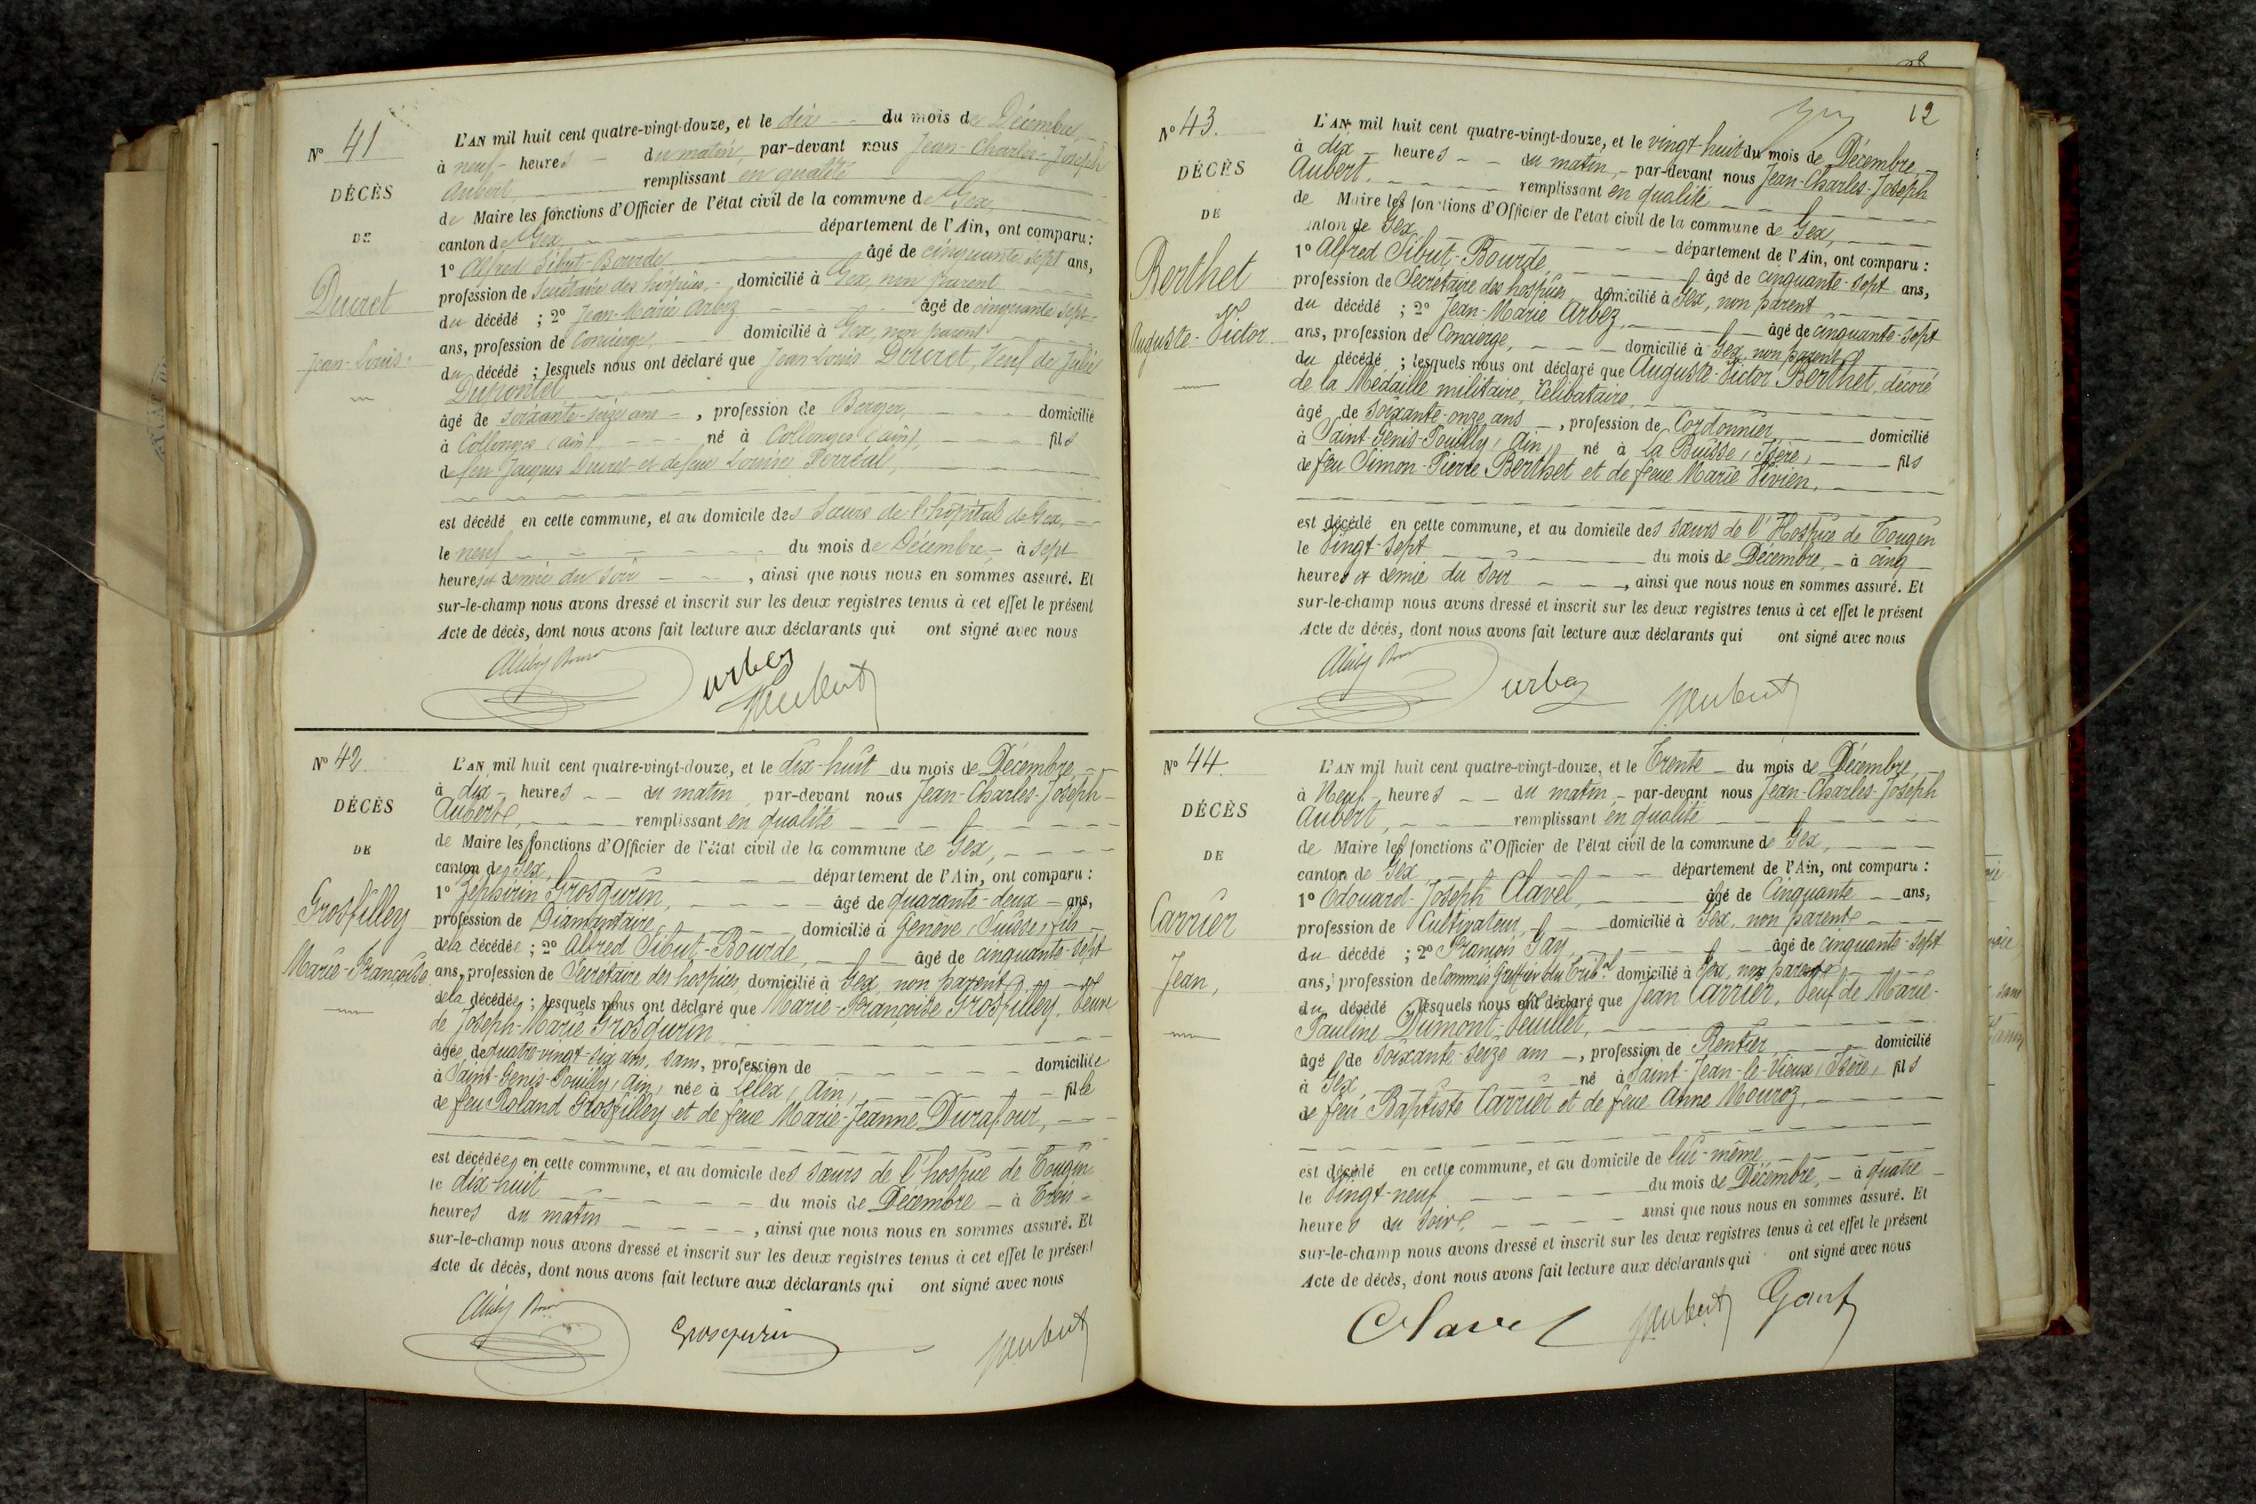 N° 41
DÉCÈS
DE
Ducret
Jean-Louis
L'AN mil huit cent quatre-vingt-douze, et le dix du mois de Décembre
à neuf heures du matin, par-devant nous Jean-Charles-Joseph
Aubert, remplissant en qualité
de Maire les fonctions d'Officier de l'état civil de la commune de Gex
canton de Gex département de l'Ain, ont comparu :
1° Alfred Sibut-Bourde âgé de cinquante sept ans,
profession de Secrétaire des hospices, domicilié à Gex, non parent
du décédé ; 2° Jean-Marie Arbez âgé de cinquante sept
ans, profession de Concierge, domicilié à Gex, non parent
du décédé ; lesquels nous ont déclaré que Jean-Louis Ducret, Veuf de Julie
Dupontet
âgé de soixante-seize ans, profession de Berger, domicilié
à Collonges (ain) né à Collonges (ain), fils
de feu Jacques Ducret et de feue Louise Perréal,
est décédé en cette commune, et au domicile des Sœurs de l'hôpital de Gex,
le neuf du mois de Décembre, à sept
heures et demie du soir, ainsi que nous nous en sommes assuré. Et
sur-le-champ nous avons dressé et inscrit sur les deux registres tenus à cet effet le présent
Acte de décès, dont nous avons fait lecture aux déclarants qui ont signé avec nous
arbez
JAubert
N° 42.
DÉCÈS
DE
Grosfilley
Marie-Françoise
L'AN mil huit cent quatre-vingt-douze, et le dix-huit du mois de Décembre,
à dix heures du matin, par-devant nous Jean-Charles-Joseph
Aubert, remplissant en qualité
de Maire les fonctions d'Officier de l'état civil de la commune de Gex,
canton de Gex, département de l'Ain, ont comparu :
1° Zéphirin Grosgurin, âgé de quarante-deux ans,
profession de Diamantaire, domicilié à Genève (Suisse) fils
de la décédée ; 2° Alfred Sibut-Bourde, âgé de cinquante-sept
ans, profession de Secrétaire des hospices, domicilié à Gex, non parent
de la décédée ; lesquels nous ont déclaré que Marie-Françoise Grosfilley, Veuve
de Joseph-Marie Grosgurin
âgée de quatre-vingt-six ans, sans, profession de domiciliée
à Saint-Genis-Pouilly (Ain) née à Lélex (Ain), fille
de feu Roland Grosfilley et de feue Marie-Jeanne Durafour,
est décédée, en cette commune, et au domicile des sœurs de l'hospice de Tougin
le dix-huit du mois de Décembre à Trois
heures du matin, ainsi que nous nous en sommes assuré. Et
sur-le-champ nous avons dressé et inscrit sur les deux registres tenus à cet effet le présent
Acte de décès, dont nous avons fait lecture aux déclarants qui ont signé avec nous
Grosgurin
JAubert
12
N° 43.
DÉCÈS
DE
Berthet
Auguste-Victor
L'AN mil huit cent quatre-vingt-douze, et le vingt-huit du mois de Décembre,
à dix heures du matin, par-devant nous Jean-Charles-Joseph
Aubert, remplissant en qualité
de Maire les fonctions d'Officier de l'état civil de la commune de Gex,
canton de Gex département de l'Ain, ont comparu :
1° Alfred Sibut-Bourde, âgé de cinquante-sept ans,
profession de Secrétaire des hospices domicilié à Gex, non parent
du décédé ; 2° Jean-Marie Arbez, âgé de cinquante-sept
ans, profession de Concierge, domicilié à Gex, non parent
du décédé ; lesquels nous ont déclaré que Auguste-Victor Berthet, décoré
de la Médaille militaire, Célibataire,
âgé de soixante-onze ans, profession de Cordonnier, domicilié
à Saint-Genis-Pouilly (Ain) né à La Buisse (Isère) fils
de feu Simon-Pierre Berthet et de feue Marie Vivien,
est décédé en cette commune, et au domicile des sœurs de l'Hospice de Tougin
le Vingt-sept du mois de Décembre, à cinq
heures et demie du soir, ainsi que nous nous en sommes assuré. Et
sur-le-champ nous avons dressé et inscrit sur les deux registres tenus à cet effet le présent
Acte de décès, dont nous avons fait lecture aux déclarants qui ont signé avec nous
arbez
JAubert
N° 44.
DÉCÈS
DE
Carrier
Jean,
L'AN mil huit cent quatre-vingt-douze, et le Trente du mois de Décembre,
à Neuf heures du matin, par-devant nous Jean-Charles-Joseph
Aubert, remplissant en qualité
de Maire les fonctions d'Officier de l'état civil de la commune de Gex,
canton de Gex département de l'Ain, ont comparu :
1° Edouard-Joseph Clavel, âgé de Cinquante ans,
profession de Cultivateur, domicilié à Gex, non parent
du décédé ; 2° François Gay, âgé de cinquante-sept
ans, profession de Commis Greffier du Trib.al domicilié à Gex, non parent
du décédé lesquels nous ont déclaré que Jean Carrier, Veuf de Marie-
Pauline Dumont-Feuillet,
âgé de soixante-seize ans, profession de Rentier, domicilié
à Gex né à Saint-Jean-le-Vieux (Isère) fils
de feu Baptiste Carrier et de feue Anne Mouroz,
est décédé en cette commune, et au domicile de lui-même,
le Vingt-neuf du mois de Décembre, à quatre
heures du soir, ainsi que nous nous en sommes assuré. Et
sur-le-champ nous avons dressé et inscrit sur les deux registres tenus à cet effet le présent
Acte de décès, dont nous avons fait lecture aux déclarants qui ont signé avec nous
Clavel
JAubert